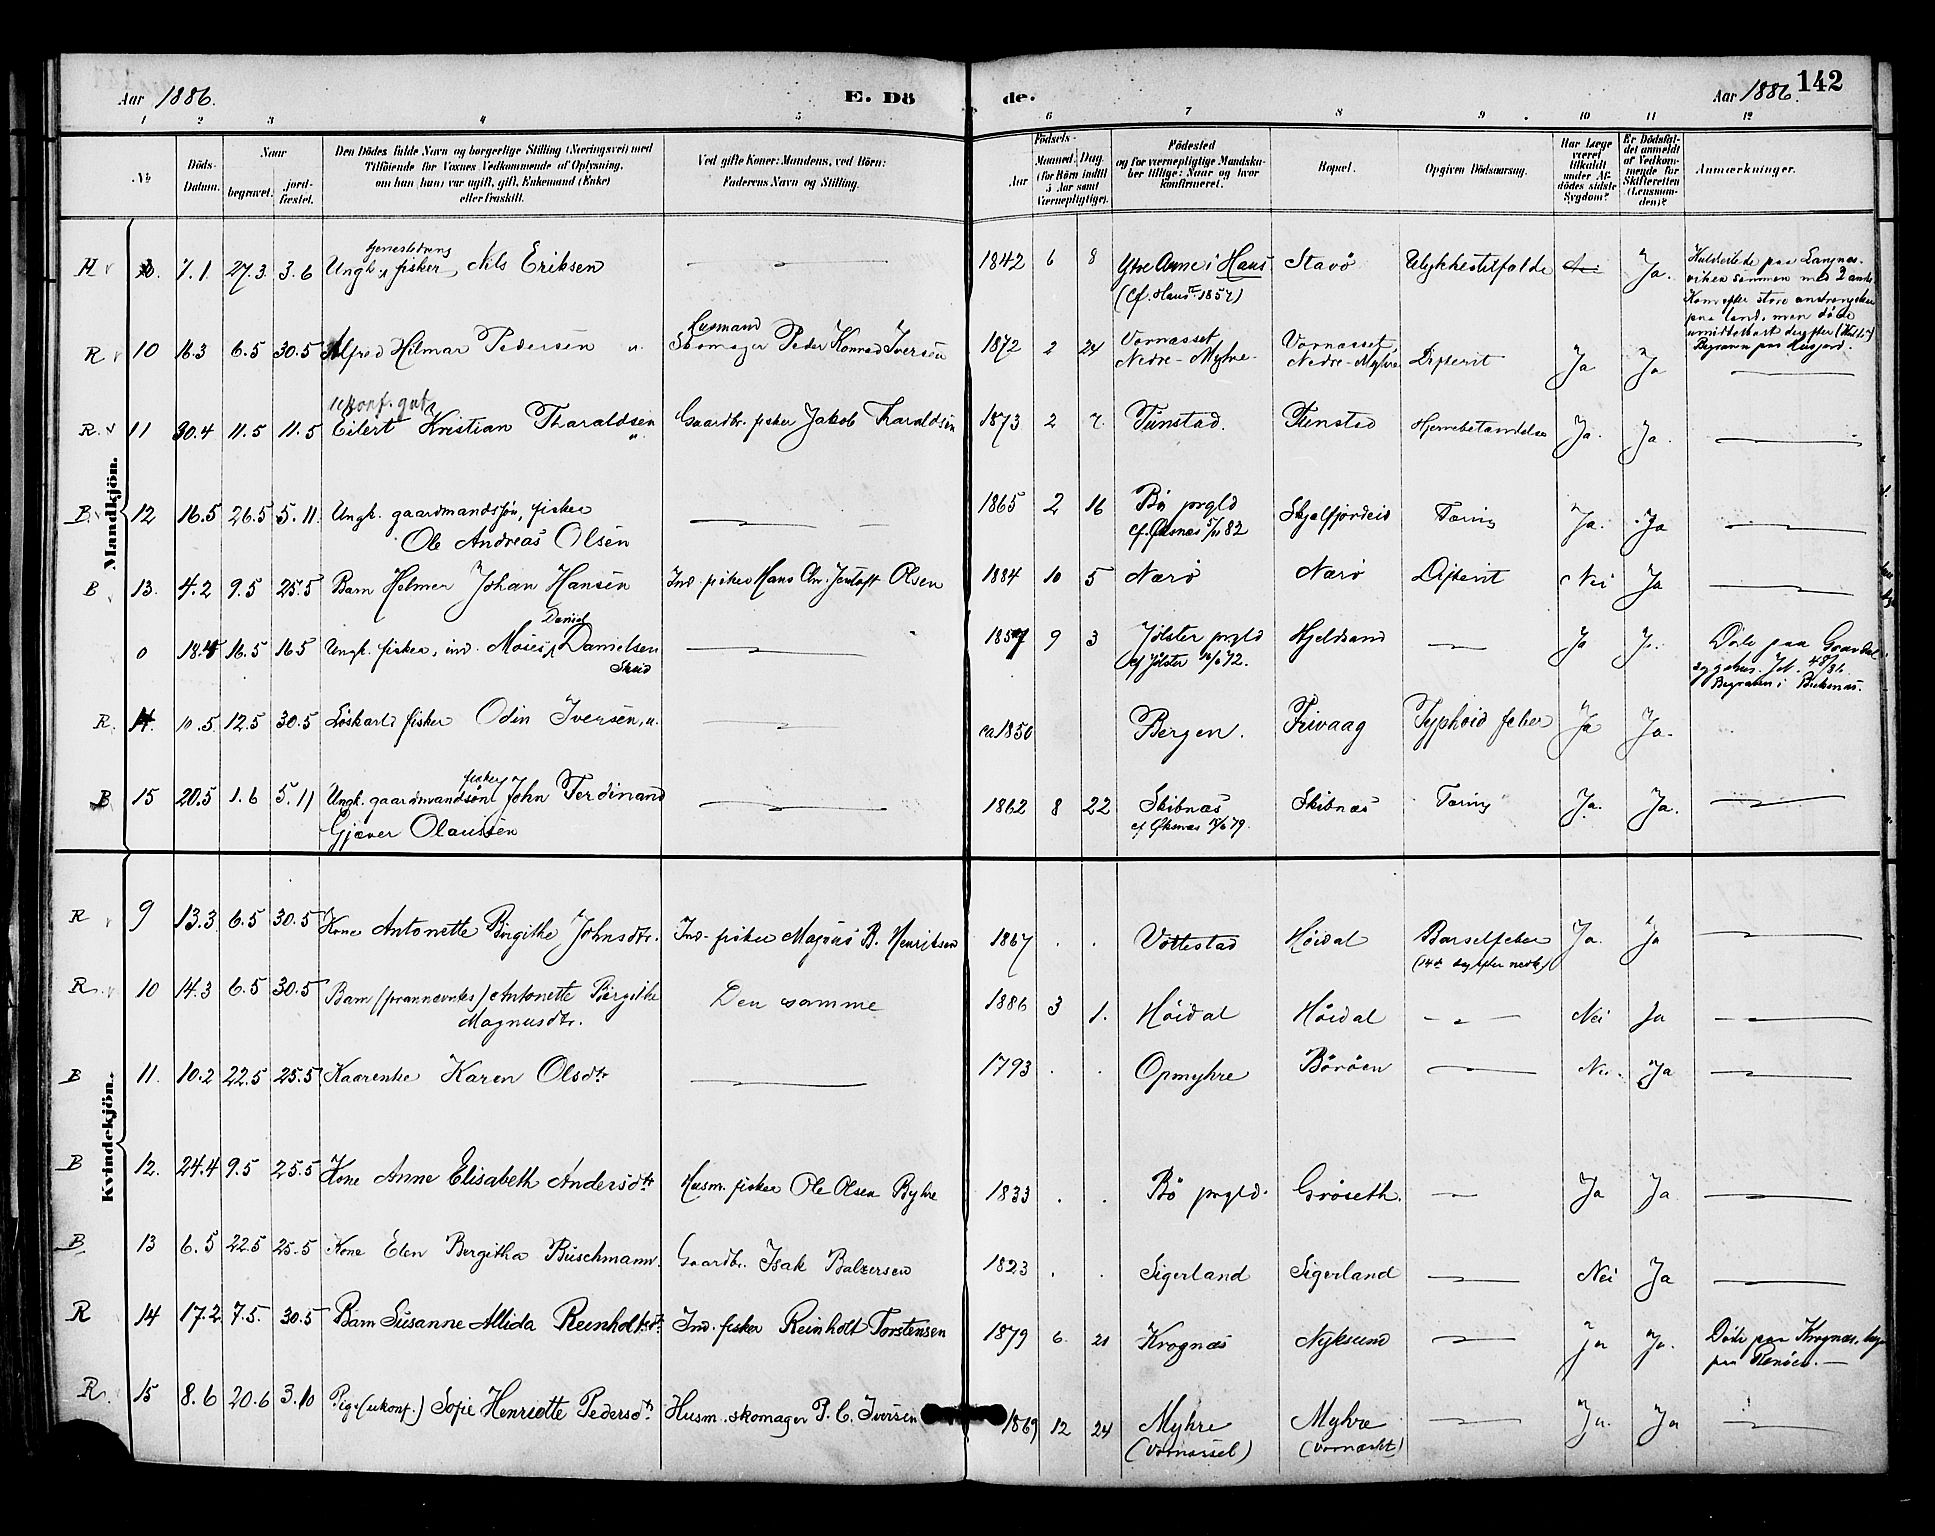 Aar 1886. E. Dö de. Aar 1886. 142
1 2 3 4 5 6 7 8 9 10 11 12
No
Döds-Datum.
Naar
begravet.
jord-fæstet.
Den Dödes fulde Navn og borgerlige Stilling (Næringsvei) med
Tilföiende for Voxnes Vedkommende af Oplysning,
om han (hun) var ugift, gift, Enkemand (Enke)
eller fraskilt.
Ved gifte Koner: Mandens, ved Börn:
Faderens Navn og Stilling.
Födsels-
Aar
Maaned. Dag.
(for Börn indtil
5 Aar samt
Værnepligtige).
Födested
og for værnepligtige Mandska-
ber tillige: Naar og hvor
konfirmeret.
Bopæl.
Opgiven Dödsaarsag.
Har Læge
været
tilkaldt
under Af-
dödes sidste
Sygdom?
Er Dödsfal-
det anmeldt
af Vedkom-
mende for
Skifteretten
(Lensman-
den)?
Anmærkninger.
Mandkjön.
H 7.1 27.3 3.6 Ungk. fisker Nils Eriksen 1842 6 8 Ytre Arne i Haus Stavö Ulykkestilfælde Ja.
(Cf. Haus 1857)
Hvælvede paa Langnes-
viken sammen med 2 andre
Kom efter store anstrengelser
paa land, men døde
umiddelbart derefter
Begraven paa
Husmand
R 10 16.3 6.5 30.5 Alfred Hilmar Pedersen u. Skomager Peder Konrad Iversen 1872 2 24 Vornæsset Vornæsset Difterit Ja Ja
Nedre-Myhre Nedre-Myhre
ukonf. gut
R. 11 30.4 11.5 11.5 Eilert Kristian Tharaldsen Gaardbr. fisker Jakob Tharaldsen 1873 2 7. Tunstad. Tunstad Hjernebetændelse Ja. Ja.
B. 12 16.5 26.5 5.11. Ungk. gaardmandssøn, fisker 1865 2 16 Bø prgld Skjelfjordeid Tæring Ja. Ja
Ole Andreas Olsen cf. Øksnæs 82
B 13. 4.2 9.5 25.5 Barn Helmer Johan Hansen Ind. fisker Hans Chr. Jentoft Olsen 1884 10 5 Nærö Nærö Difterit Nei Ja
Daniel
0 18.4 16.5 16.5 Ungk. fisker, ind. Moses Danielsen 1857 9 3 Jølster prgld Hjeldsand Ja Ja. Døde paa Gravdal
cf Jølster 72. sygehus.
Begraven i Buksnæs.
R. 14. 10.5 12.5 30.5 Løskarl fisker Odin Iversen, u. ca 1850 Bergen. Frivaag Typhoid feber Ja Ja.
B 15 20.5 1.6 5.11 Ungk. gaardmandssøn fisker John Ferdinand 1862 8 22 Skibnæs Skibnæs Tæring Ja. Ja.
Gjæver Olaussen cf Øksnæs 79.
Kvindekjön.
R 9 13.3 6.5 30.5 Kone Antonette Birgithe Johnsdtr. Ind. fisker Magnus B. Henriksen 1867 . . Vottestad Höidal Barselfeber Ja. Ja
R. 10 14.3 6.5 30.5 Barn (forannævntes) Antonette Birgithe Den samme 1886 3 1. Höidal Höidal Nei Ja
Magnusdtr.
B 11. 10.2 22.5 25.5 Kaarenke Karen Olsdtr 1793 . . Opmyhre Böröen Nei. Ja
B 12. 24.4 9.5 25.5 Kone Anne Elisabeth Andersdtr Husm. fisker Ole Olsen Ryhre 1833 . . Bö prgld. Gröseth. Ja Ja
B. 13 6.5 22.5 25.5 Kone Elen Bergitha Buschmann. Gaardbr. Isak Balzersen 1823 . . Sigerland Sigerland Nei Ja
R 14 17.2 7.5. 30.5 Barn Susanne Allida Reinholtsdtr Ind. fisker Reinholt Torstensen 1879 6. 21 Krognæs Nyksund Ja Ja. Døde paa Krognæs,
paa Renöen.
R. 15 8.6 20.6 3.10 Pige (ukonf.) Sofie Henriette Pedersdtr Husm. skomager P. C. Iversen 1869 12 24 Myhre Myhre Ja. Ja
(Vornæsset) (Vornæsset)